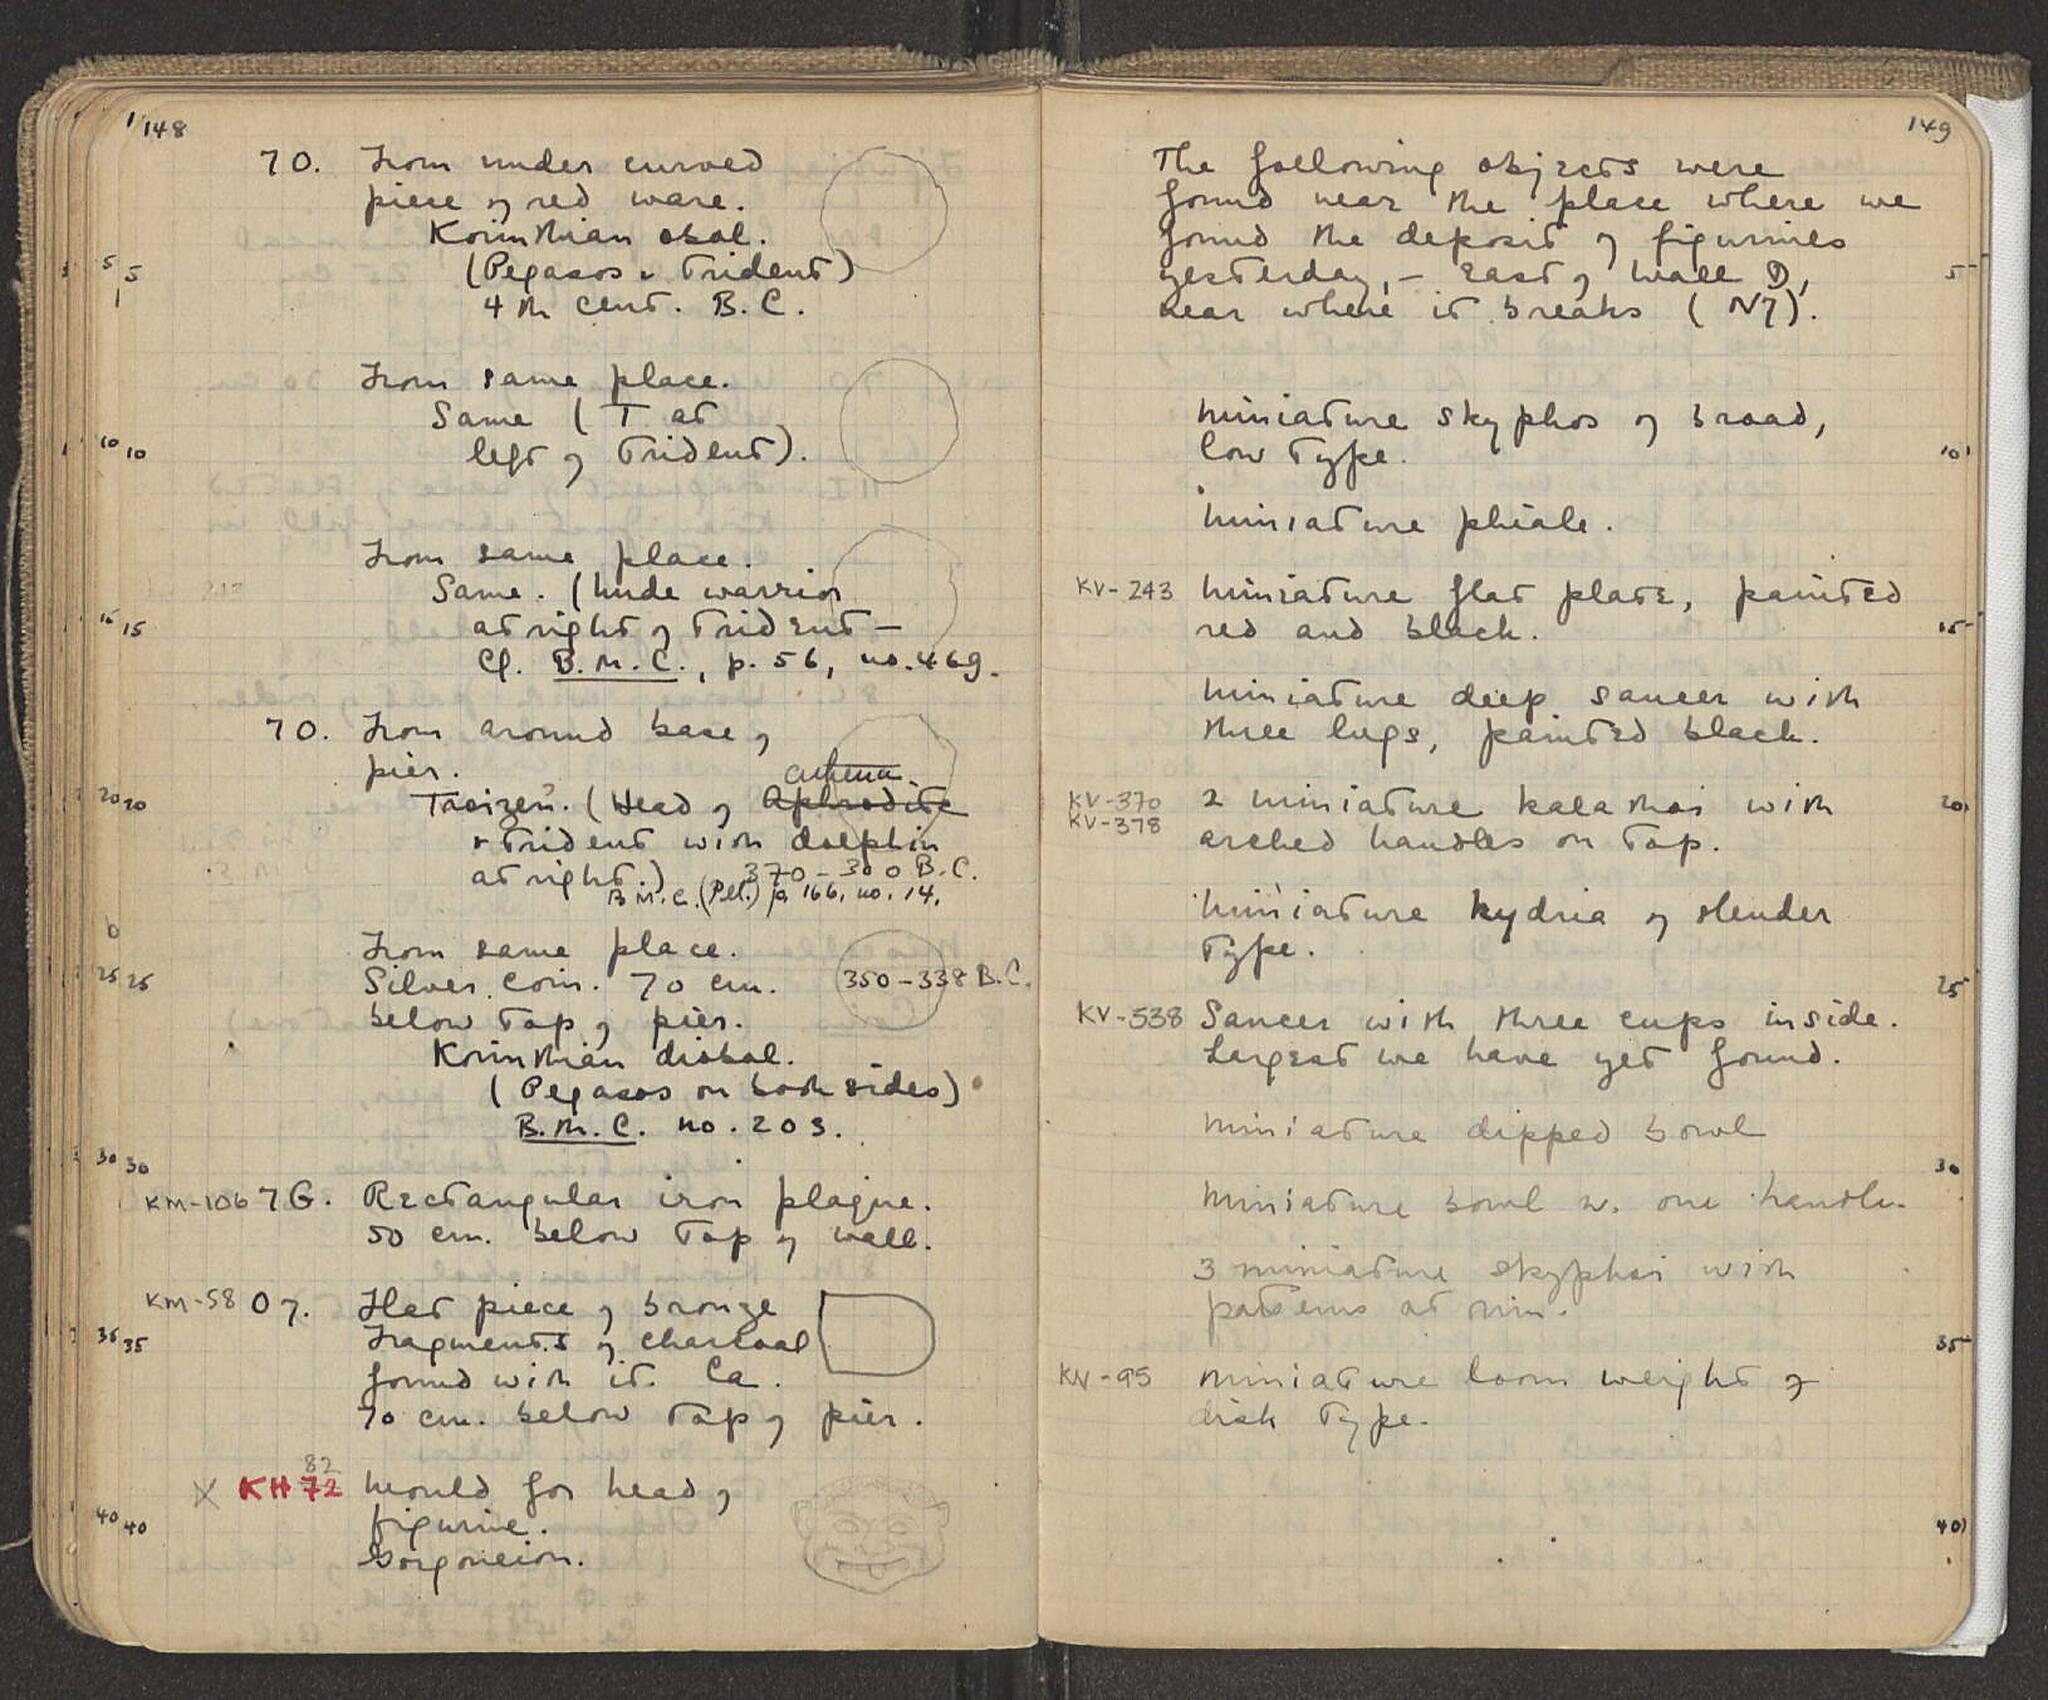 148
70. From under curved
piece of red ware.
Korinthian obol.
(Pegasos & trident)
4th cent. B.C.
5 5
From same place.
Same (T at
left of trident).
10 10
From same place.
Same. (Nude warrior
at right of trident –
Cf. B.M.C., p. 56, no. 469.
15 15
70. From around base of
pier.
Athena.
Troizen. (Head of Aphrodite
& trident with dolphin
at right.) 370–300 B.C.
B.M.C. (Pel.) p. 166, no. 14.
20 20
From same place.
Silver coin. 70 cm. 350–338 B.C.
below top of pier.
25 25
Korinthian diobol.
(Pegasos on both sides)
B.M.C. no. 203.
30 30
KM-106 7G. Rectangular iron plaque.
50 cm. below top of wall.
KM-58 07. Flat piece of bronze
Fragments of charcoal
35 35
found with it. Ca.
70 cm. below top of pier.
82
X KH 72 Mould for head of
figurine.
40 40
Gorgoneion.
149
The following objects were
found near the place where we
found the deposit of figurines
yesterday, – East of Wall D, 5
near where it breaks (N7).
Miniature skyphos of broad,
low type. 10
Miniature phiale.
KV-243 Miniature flat plate, painted
red and black. 15
Miniature deep saucer with
three lugs, painted black.
KV-370 2 miniature kalathoi with 20
KV-378 arched handles on top.
Miniature hydria of slender
type.
25
KV-538 Saucer with three cups inside.
Largest we have yet found.
Miniature dipped bowl
30
Miniature bowl w. one handle.
3 miniature skyphoi with
patterns at rim.
35
KN-95 Miniature loom weight of
disk type.
40